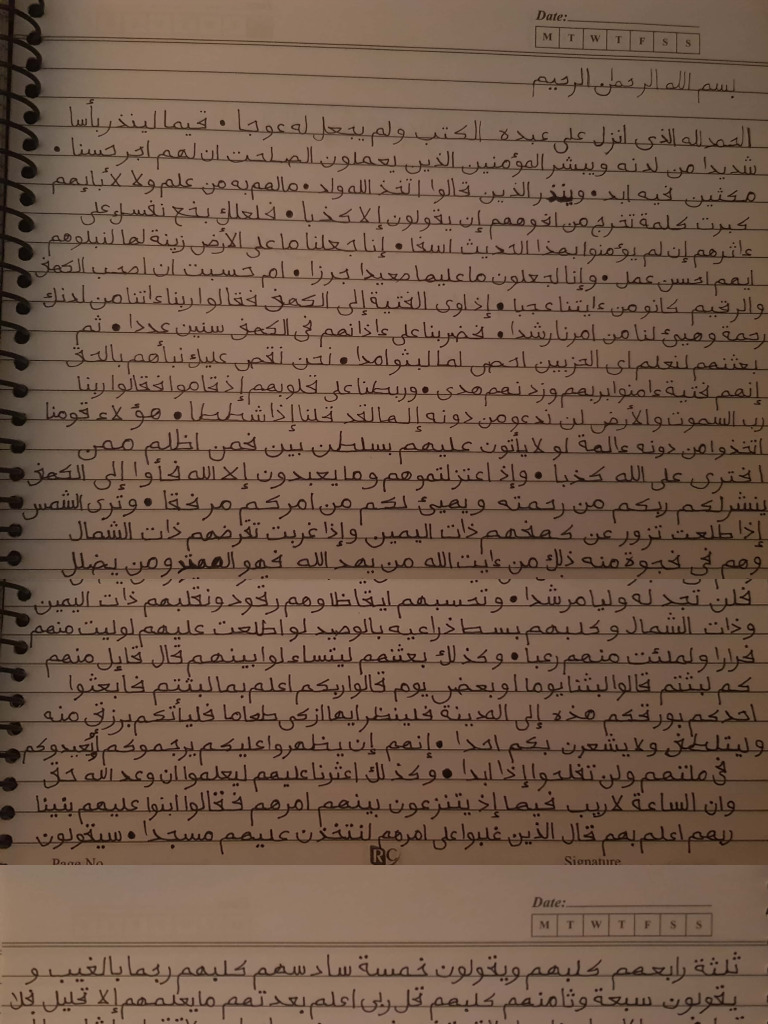 Date:
M T W T F S S
بسم الله الرحمن الرحيم
الحمدلله الذى انزل على عبده الكتب ولم يجعل له عوجا • قيما لينذر بأسا
شديدا من لدنه ويبشر المؤمنين الذين يعملون الصلحت ان لهم اجر حسنا •
مكثين فيه ابد • وينذر الذين قالوا اتخذ الله ولد • مالهم به من علم ولا لأبايهم
كبرت كلمة تخرج من افوههم إن يقولون إلا كذبا • فلعلك بخع نفسك على
ءاثرهم إن لم يؤمنوا بهذا الحديث اسفا • إنا جعلنا ما على الأرض زينة لها لنبلوهم
ايهم احسن عمل • وإنا لجعلون ما عليها صعيدا جرزا • ام حسبت ان اصحب الكهف
والرقيم كانو من ءايتنا عجبا • إذ اوى الفتية إلى الكهف فقالوا ربنا ءاتنا من لدنك
رحمة وهيئ لنا من امرنا رشدا • فضربنا على ءاذانهم فى الكهف سنين عددا • ثم
بعثنهم لنعلم اى الحزبين احصى لما لبثوا مدا • نحن نقص عليك نبأهم بالحق
إنهم فتية ءامنوا بربهم وزدنهم هدى • وربطنا على قلوبهم إذ قاموا فقالوا ربنا
رب السموت والأرض لن ندعو من دونه إلها لقد قلنا إذا شططا • هؤلاء قومنا
اتخذوا من دونه ءالهة لو لا يأتون عليهم بسلطن بين فمن اظلم ممن
افترى على الله كذبا • وإذ اعتزلتموهم وما يعبدون إلا الله فأوا إلى الكهف
ينشر لكم ربكم من رحمته ويهيئ لكم من امركم مرفقا • وترى الشمس
إذا طلعت تزور عن كهفهم ذات اليمين وإذا غربت تقرضهم ذات الشمال
وهم في فجوة منه ذلك من ءايت الله من يهد الله فهو المهتد ومن يضلل
فلن تجد له وليا مرشدا • وتحسبهم ايقاظا وهم رقود ونقلبهم ذات اليمين
وذات الشمال وكلبهم بسط ذراعيه بالوصيد لو اطلعت عليهم لوليت منهم
فرارا ولملئت منهم رعبا • وكذلك بعثنهم ليتساءلوا بينهم قال قايل منهم
كم لبثتم قالوا لبثنا يوما او بعض يوم قالوا ربكم اعلم بما لبثتم فابعثوا
احدكم بورقكم هذه إلى المدينة فلينظر ايها ازكى طعاما فليأتكم برزق منه
وليتلطف ولا يشعرن بكم احدا • إنهم إن يظهروا عليكم يرجموكم أو يعيدوكم
فى ملتهم ولن تفلحوا إذا ابدا • وكذلك اعثرنا عليهم ليعلموا ان وعد الله حق
وان الساعة لا ريب فيها إذ يتنزعون بينهم امرهم فقالوا ابنوا عليهم بنينا
ربهم اعلم بهم قال الذين غلبوا على امرهم لنتخذن عليهم مسجدا • سيقولون
Page No. RC Signature
Date:
M T W T F S S
ثلثة رابعهم كلبهم ويقولون خمسة سادسهم كلبهم رجما بالغيب و
يقولون سبعة وثامنهم كلبهم قل ربى اعلم بعدتهم ما يعلمهم إلا قليل فلا